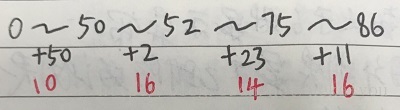 0 ~ 50 ~ 52 ~ 75 ~ 86
+50 +2 +23 +11
10 16 14 16